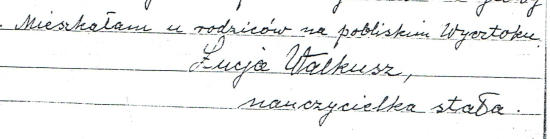 . Mieszkałam u rodziców na pobliskim Wycztoku.
Łucja Walkusz,
nauczycielka stała.